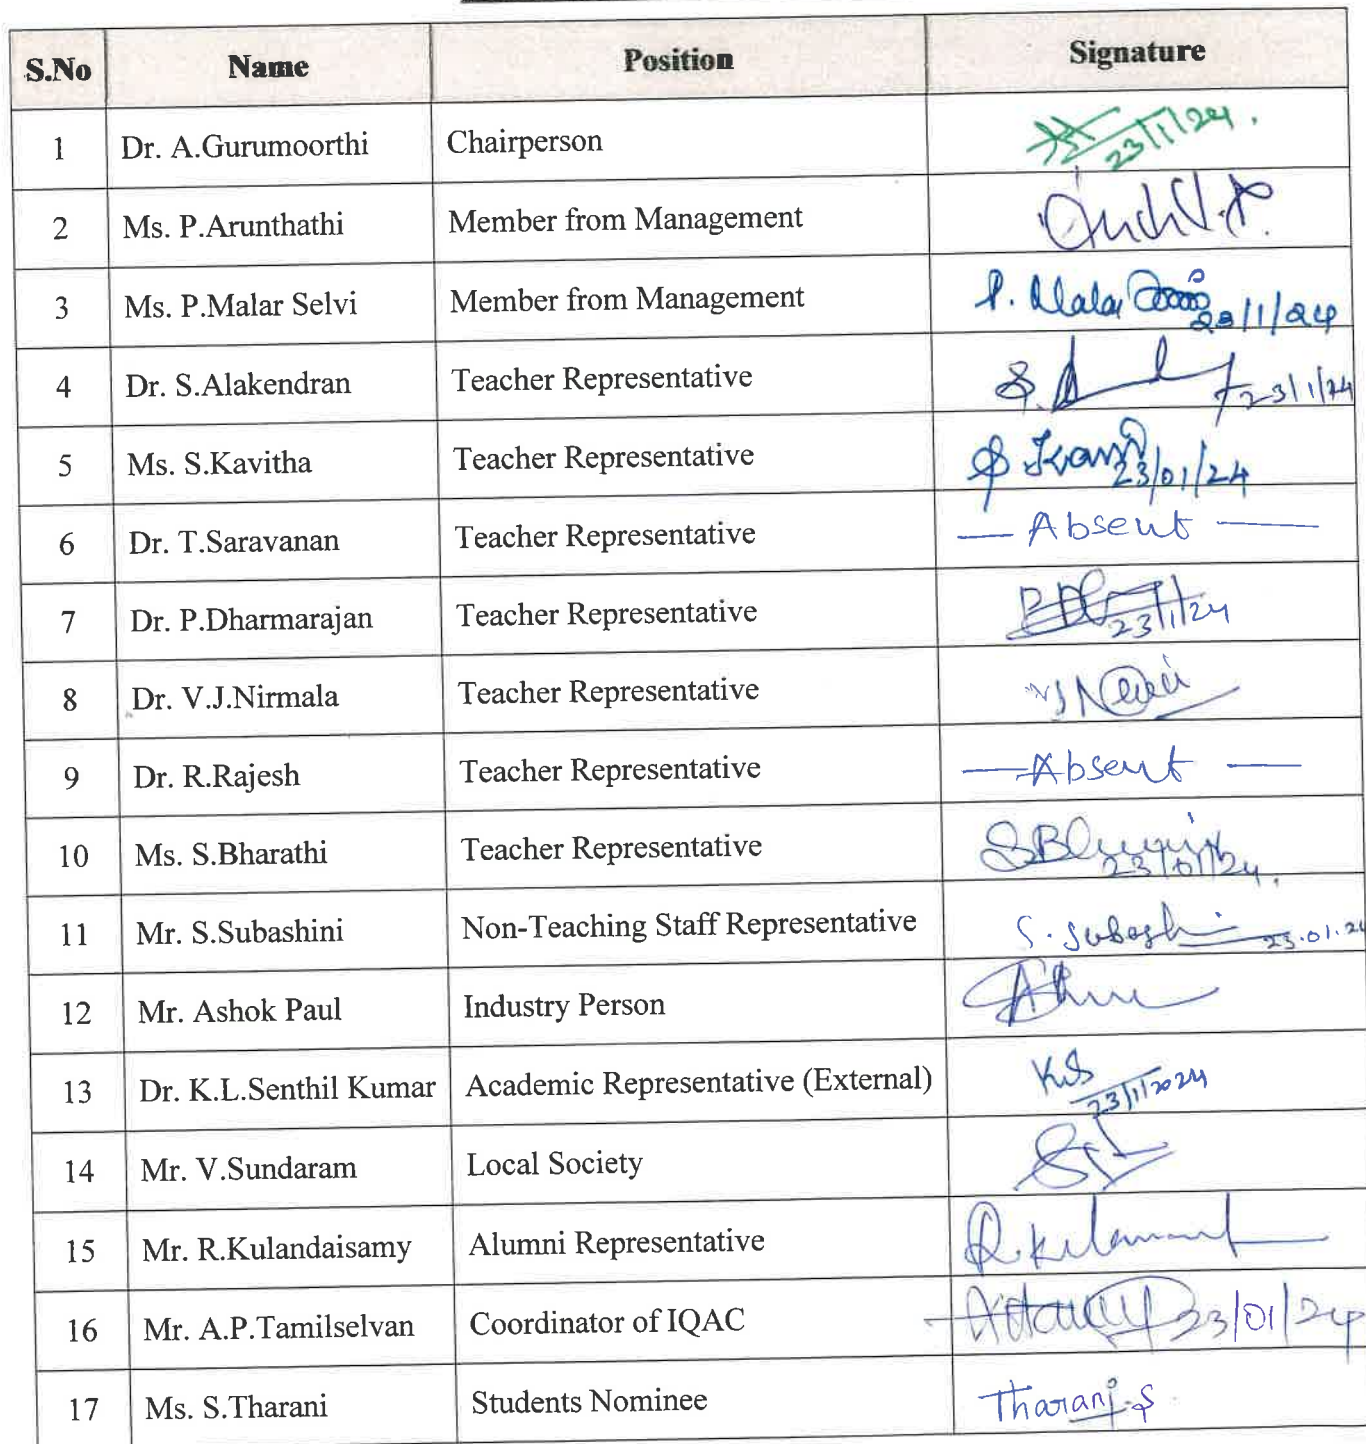 S.No Name Position Signature
1 Dr. A.Gurumoorthi Chairperson 23/1/24.
2 Ms. P.Arunthathi Member from Management
3 Ms. P.Malar Selvi Member from Management P. Malar 23/1/24
4 Dr. S.Alakendran Teacher Representative S. 23/1/24
5 Ms. S.Kavitha Teacher Representative 23/01/24
6 Dr. T.Saravanan Teacher Representative — Absent —
7 Dr. P.Dharmarajan Teacher Representative 23/1/24
8 Dr. V.J.Nirmala Teacher Representative
9 Dr. R.Rajesh Teacher Representative — Absent —
10 Ms. S.Bharathi Teacher Representative 23/01/24.
11 Mr. S.Subashini Non-Teaching Staff Representative S. Subashi 23.01.24
12 Mr. Ashok Paul Industry Person
13 Dr. K.L.Senthil Kumar Academic Representative (External) 23/1/2024
14 Mr. V.Sundaram Local Society
15 Mr. R.Kulandaisamy Alumni Representative
16 Mr. A.P.Tamilselvan Coordinator of IQAC 23/01/24
17 Ms. S.Tharani Students Nominee Tharani.S